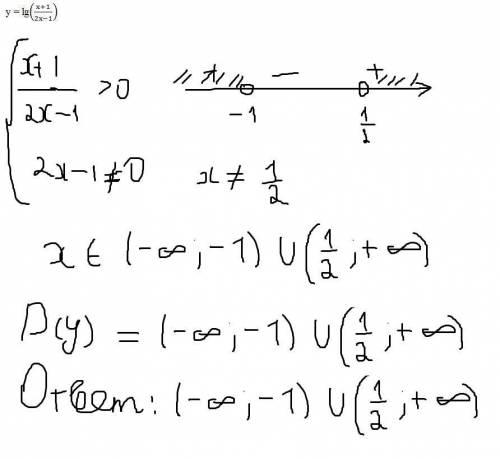 y = lg((x+1)/(2x−1))
{ (x+1)/(2x−1) > 0   + − +
−1   1/2
2x−1≠0   x ≠ 1/2
x ∈ (−∞;−1) ∪ (1/2;+∞)
D(y) = (−∞;−1) ∪ (1/2;+∞)
Ответ: (−∞;−1) ∪ (1/2;+∞)